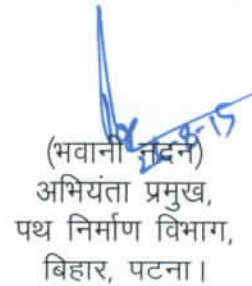 (भवानी नंदन)
अभियंता प्रमुख,
पथ निर्माण विभाग,
बिहार, पटना।